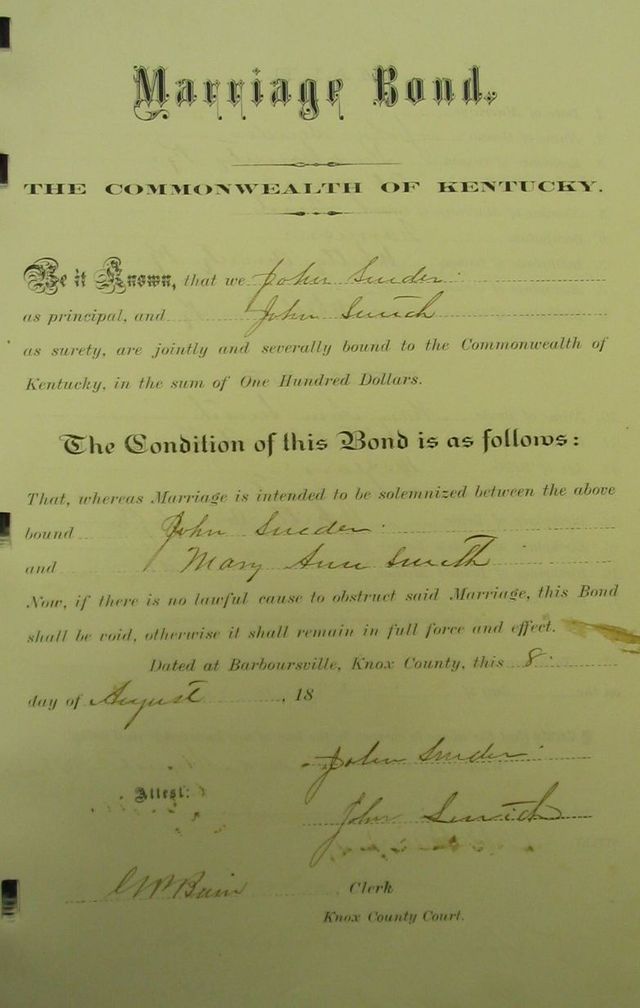 Marriage Bond.
THE COMMONWEALTH OF KENTUCKY.
Be it Known, that we John Snider
as principal, and John Smith
as surety, are jointly and severally bound to the Commonwealth of
Kentucky, in the sum of One Hundred Dollars.
The Condition of this Bond is as follows:
That, whereas Marriage is intended to be solemnized between the above
bound John Snider
and Mary Ann Smith
Now, if there is no lawful cause to obstruct said Marriage, this Bond
shall be void, otherwise it shall remain in full force and effect.
Dated at Barboursville, Knox County, this 8
day of August, 18
John Snider
Attest:
John Smith
Bain Clerk
Knox County Court.